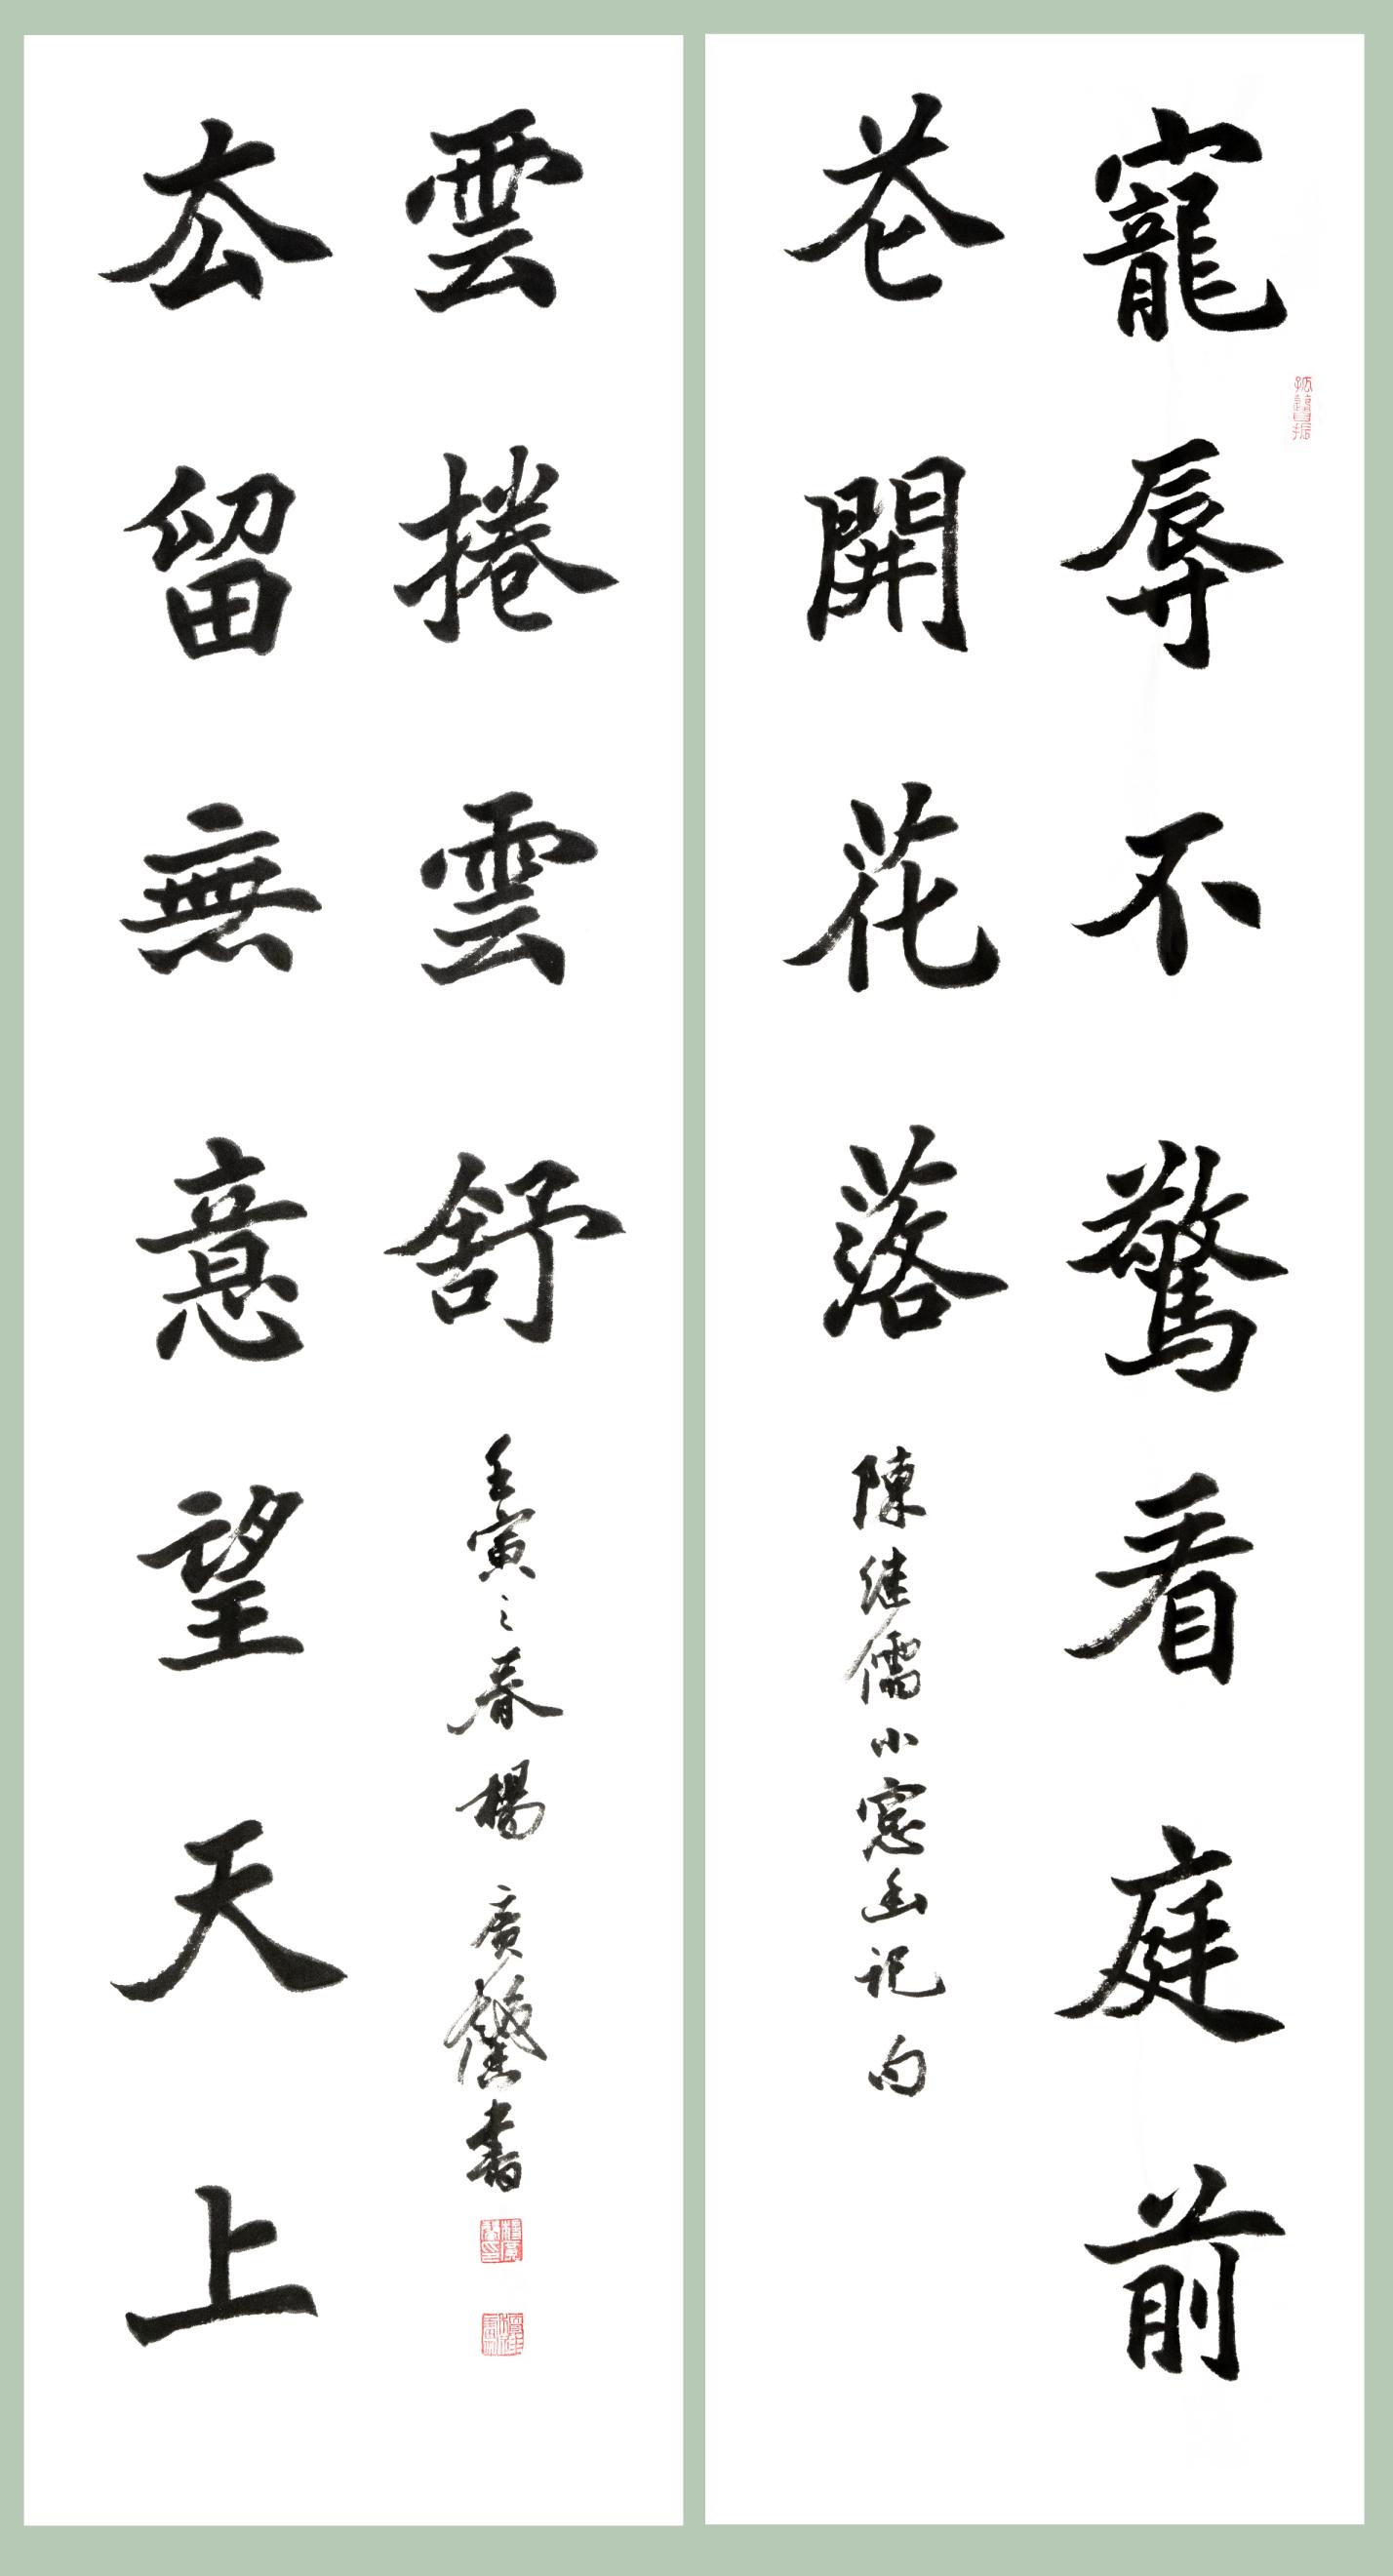 寵辱不驚看庭前
花開花落
陳继儒小窓幽记句
去留無意望天上
雲捲雲舒
壬寅之春楊廣馨書